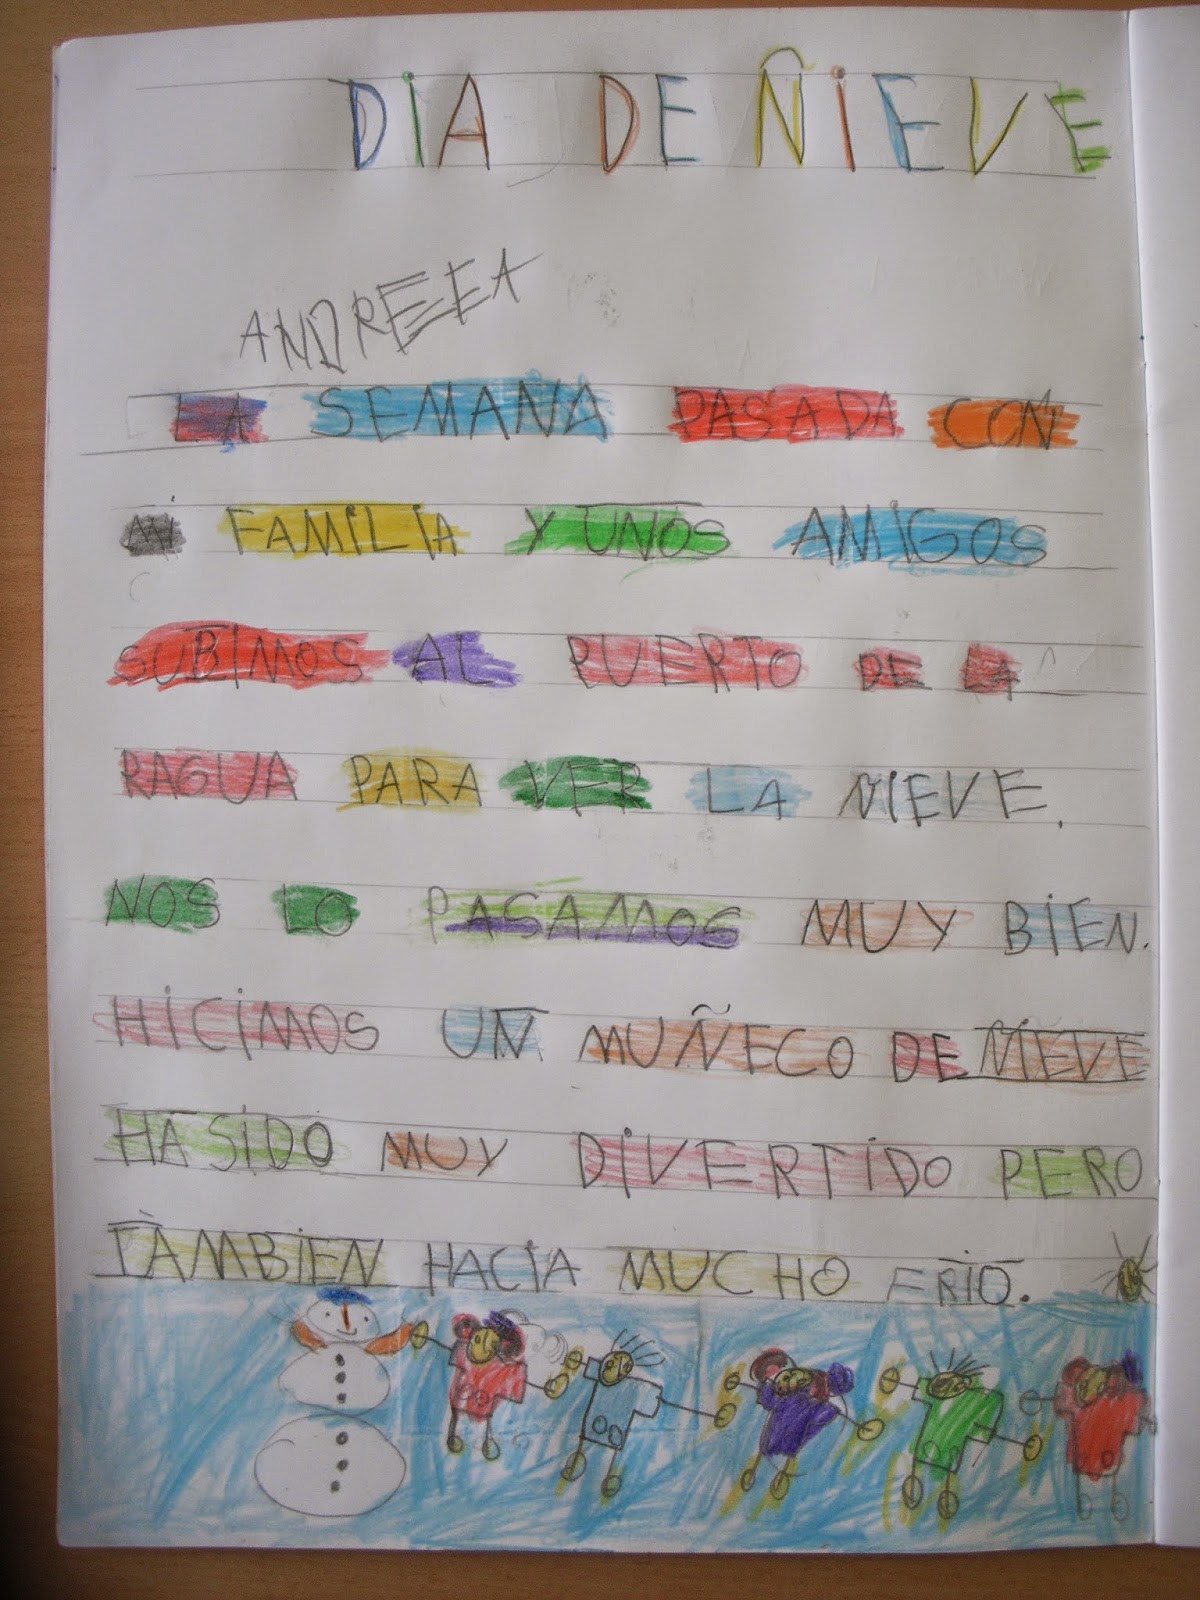 DiA DE ÑiEVE
ANDREEA
LA SEMANA PASADA CON
Mi FAMiLiA Y UNOS AMiGOS
SUBIMOS AL PUERTO DE LA
RAGUA PARA VER LA NIEVE.
NOS LO PASAMOS MUY BiEN.
HiCiMOS UN MUÑECO DE NIEVE
HA SiDO MUY DiVERTiDO PERO
TAMBIEN HACIA MUCHO FRIO.